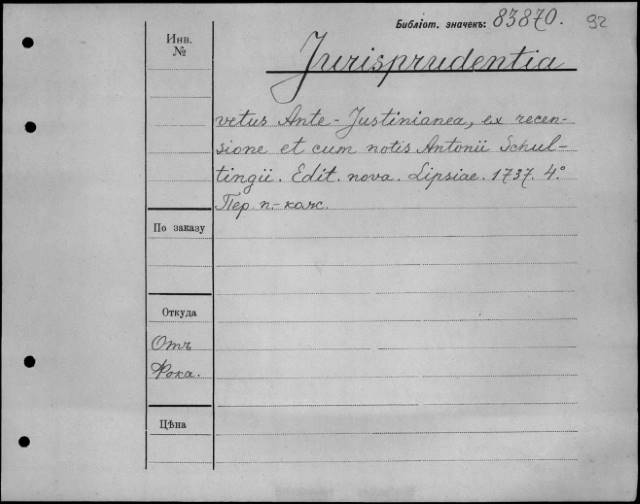 Библіот. значекъ: 83870. 92
Инв.
№
Jurisprudentia
vetus Ante-Justinianea, ex recen-
sione et cum notis Antonii Schul-
tingii. Edit. nova. Lipsiae. 1737. 4.º
Пер. п.-кожс.
По заказу
Откуда
Отъ
Фока.
Цѣна